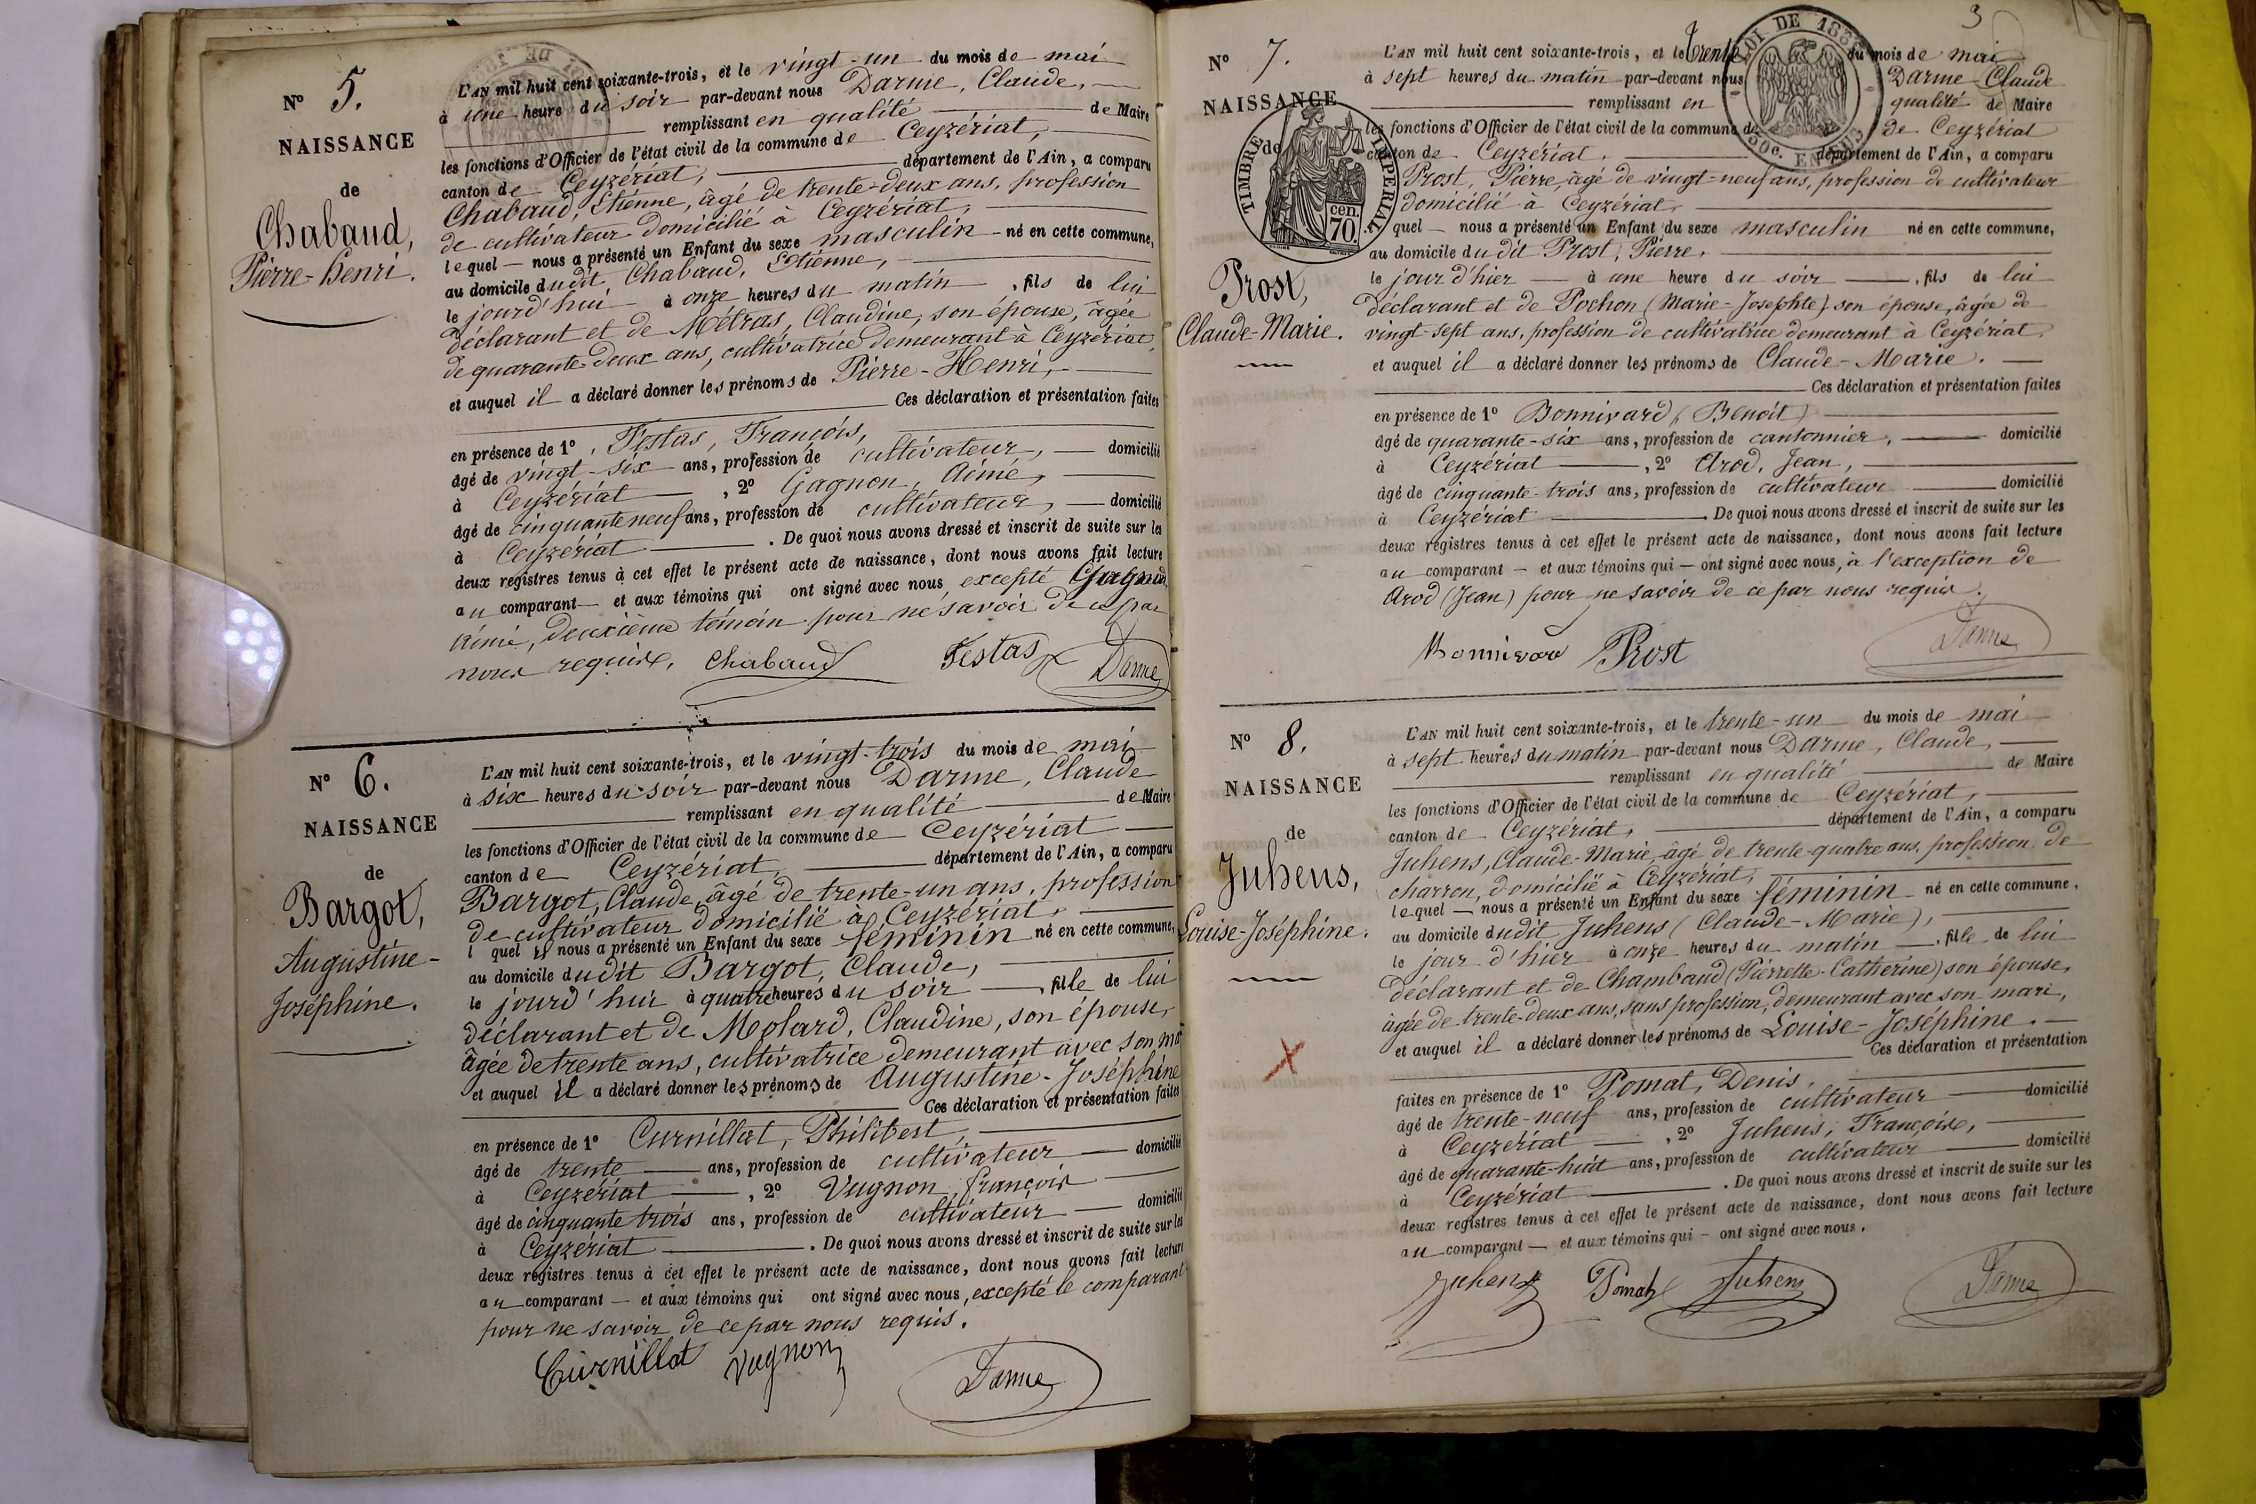 N° 5.
NAISSANCE
de
Chabaud,
Pierre-Henri.
L'AN mil huit cent soixante-trois, et le vingt-un du mois de mai
à une heure du soir par-devant nous Darme, Claude,
remplissant en qualité de Maire
les fonctions d'Officier de l'état civil de la commune de Ceyzériat,
canton de Ceyzériat, département de l'Ain, a comparu
Chabaud, Etienne, âgé de trente-deux ans, profession
de cultivateur domicilié à Ceyzériat,
lequel — nous a présenté un Enfant du sexe masculin né en cette commune,
au domicile dudit Chabaud, Etienne,
le jourd'hui à onze heures du matin, fils de lui
déclarant et de Métras, Claudine, son épouse, âgée
de quarante-deux ans, cultivatrice demeurant à Ceyzériat,
et auquel il a déclaré donner les prénoms de Pierre-Henri,
Ces déclaration et présentation faites
en présence de 1° Festas, François,
âgé de vingt-six ans, profession de cultivateur, domicilié
à Ceyzériat, 2° Gagnon, Aimé,
âgé de cinquante neuf ans, profession de cultivateur, domicilié
à Ceyzériat. De quoi nous avons dressé et inscrit de suite sur les
deux registres tenus à cet effet le présent acte de naissance, dont nous avons fait lecture
au comparant — et aux témoins qui ont signé avec nous excepté Gagnon,
Aimé, deuxième témoin pour ne savoir de ce par
nous requise. Chabaud Festas Darme
N° 6.
NAISSANCE
de
Bargot,
Augustine-
Joséphine.
L'AN mil huit cent soixante-trois, et le vingt-trois du mois de mai
à six heures du soir par-devant nous Darme, Claude
remplissant en qualité de Maire
les fonctions d'Officier de l'état civil de la commune de Ceyzériat
canton de Ceyzériat, département de l'Ain, a comparu
Bargot, Claude, âgé de trente-un ans, profession
de cultivateur domicilié à Ceyzériat,
l quel nous a présenté un Enfant du sexe féminin né en cette commune,
au domicile dudit Bargot, Claude,
le jourd'hui à quatre heures du soir, fille de lui
déclarant et de Molard, Claudine, son épouse,
âgée de trente ans, cultivatrice demeurant avec son ma
et auquel il a déclaré donner les prénoms de Augustine-Joséphine
Ces déclaration et présentation faites
en présence de 1° Curnillat, Philibert,
âgé de trente ans, profession de cultivateur domicilié
à Ceyzériat, 2° Vugnon, françois
âgé de cinquante trois ans, profession de cultivateur domicilié
à Ceyzériat. De quoi nous avons dressé et inscrit de suite sur les
deux registres tenus à cet effet le présent acte de naissance, dont nous avons fait lecture
au comparant — et aux témoins qui ont signé avec nous, excepté le comparant
pour ne savoir de ce par nous requis.
Curnillat Vugnon Darme
3
N° 7.
NAISSANCE
de
Prost,
Claude-Marie.
TIMBRE IMPERIAL
70 cen.
LOI DE 18
50c. EN SUS
L'AN mil huit cent soixante-trois, et le trente du mois de mai
à sept heures du matin par-devant nous Darme Claude
remplissant en qualité de Maire
les fonctions d'Officier de l'état civil de la commune de Ceyzériat
canton de Ceyzériat, département de l'Ain, a comparu
Prost, Pierre, âgé de vingt-neuf ans, profession de cultivateur
domicilié à Ceyzériat,
quel — nous a présenté un Enfant du sexe masculin né en cette commune,
au domicile dudit Prost, Pierre,
le jour d'hier à une heure du soir, fils de lui
déclarant et de Pochon (Marie-Josephte) son épouse, âgée de
vingt-sept ans, profession de cultivatrice demeurant à Ceyzériat,
et auquel il a déclaré donner les prénoms de Claude-Marie.
Ces déclaration et présentation faites
en présence de 1° Bonnivard, (Benoit)
âgé de quarante-six ans, profession de cantonnier, domicilié
à Ceyzériat, 2° Arod, Jean,
âgé de cinquante-trois ans, profession de cultivateur domicilié
à Ceyzériat. De quoi nous avons dressé et inscrit de suite sur les
deux registres tenus à cet effet le présent acte de naissance, dont nous avons fait lecture
au comparant — et aux témoins qui — ont signé avec nous, à l'exception de
Arod (Jean) pour ne savoir de ce par nous requis.
Bonnivard Prost Darme
N° 8.
NAISSANCE
de
Juhens,
Louise-Joséphine.
L'AN mil huit cent soixante-trois, et le trente-un du mois de mai
à sept heures du matin par-devant nous Darme, Claude,
remplissant en qualité de Maire
les fonctions d'Officier de l'état civil de la commune de Ceyzériat,
canton de Ceyzériat, département de l'Ain, a comparu
Juhens, Claude-Marie, âgé de trente-quatre ans, profession de
charron, domicilié à Ceyzériat,
lequel — nous a présenté un Enfant du sexe féminin né en cette commune,
au domicile dudit Juhens (Claude-Marie),
le jour d'hier à onze heures du matin, fille de lui
déclarant et de Chambaud (Pierrette-Catherine) son épouse,
âgée de trente-deux ans, sans profession, demeurant avec son mari,
et auquel il a déclaré donner les prénoms de Louise-Joséphine.
Ces déclaration et présentation
faites en présence de 1° Pomat, Denis,
âgé de trente-neuf ans, profession de cultivateur domicilié
à Ceyzériat, 2° Juhens, Françoise,
âgé de quarante-huit ans, profession de cultivateur domicilié
à Ceyzériat. De quoi nous avons dressé et inscrit de suite sur les
deux registres tenus à cet effet le présent acte de naissance, dont nous avons fait lecture
au comparant — et aux témoins qui — ont signé avec nous.
Juhens Pomat Juhens Darme